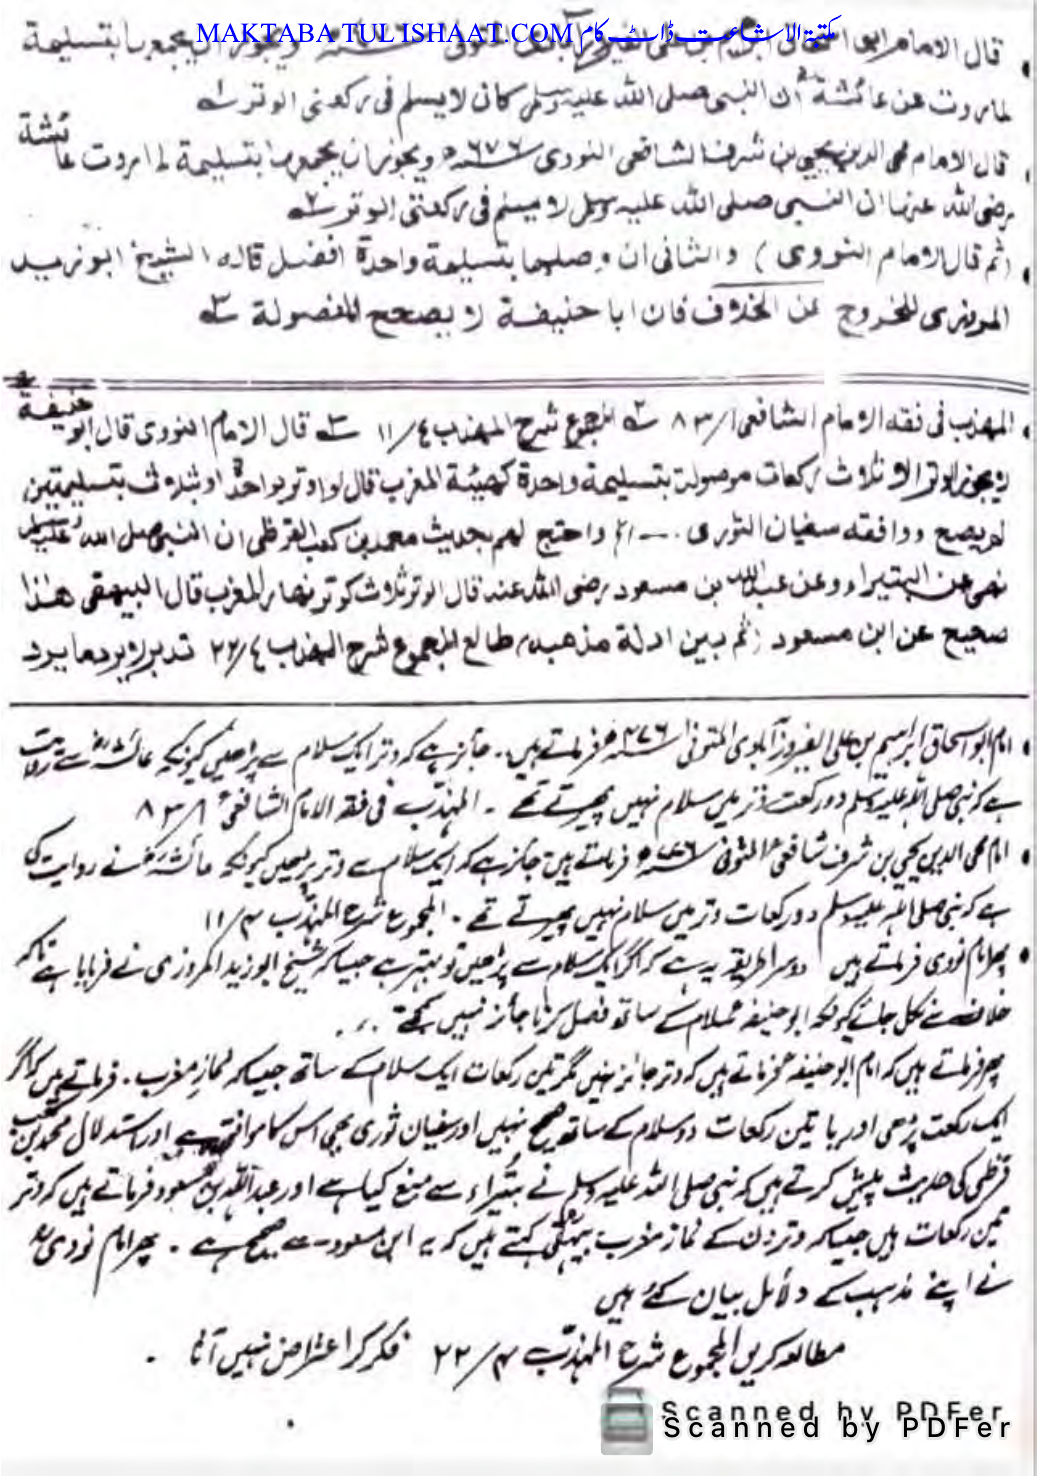 MAKTABA TUL ISHAAT.COM مکتبۃ الاشاعت ڈاٹ کام
قال الامام ابو ويجوز ان يجمعها بتسليمة
لما روت عن عائشة ان النبي صلى الله عليه وسلم كان لا يسلم في ركعتي الوتر
قال الامام محي الدين يحيى بن شرف الشافعي النووي ٦٧٦ه ويجوز ان يجمعها بتسليمة لما روت عائشة
رضي الله عنها ان النبي صلى الله عليه وسلم لا يسلم في ركعتي الوتر
(ثم قال الامام النووي) والثاني ان وصلها بتسليمة واحدة افضل قاله الشيخ ابو زيد
المروزي للخروج عن الخلاف فان ابا حنيفة لا يصحح المفصولة
المهذب في فقه الامام الشافعي ٨٣/١ المجموع شرح المهذب ١١/٤ قال الامام النووي قال ابو حنيفة
لا يجوز الوتر الا ثلاث ركعات موصولة بتسليمة واحدة كهيئة المغرب قال لو اوتر بواحدة او بثلاث بتسليمتين
لم يصح ووافقه سفيان الثوري واحتج لهم بحديث محمد بن كعب القرظي ان النبي صلى الله عليه وسلم
نهى عن البتيراء وعن عبد الله بن مسعود رضي الله عنه قال الوتر ثلاث كوتر نهار المغرب قال البيهقي هذا
صحيح عن ابن مسعود ثم بين ادلة مذهبه طالع المجموع شرح المهذب ٢٢/٤ تدبر لا يرد ما يرد
امام ابو اسحاق ابراہیم بن علی الفیروزآبادی المتوفی ۴۷۶ھ فرماتے ہیں۔ جائز ہے کہ وتر ایک سلام سے پڑھیں کیونکہ عائشہؓ سے روایت
ہے کہ نبی صلی اللہ علیہ وسلم دو رکعت وتر میں سلام نہیں پھیرتے تھے ۔ المہذب فی فقہ الامام الشافعیؒ ۸۳/۱
امام محی الدین یحیی بن شرف شافعیؒ المتوفی ۶۷۶ھ فرماتے ہیں جائز ہے کہ ایک سلام سے وتر پڑھیں کیونکہ عائشہؓ نے روایت کی
ہے کہ نبی صلی اللہ علیہ وسلم دو رکعات وتر میں سلام نہیں پھیرتے تھے ۔ المجموع شرح المہذب ۱۱/۴
پھر امام نووی فرماتے ہیں دوسرا طریقہ یہ ہے کہ اگر ایک سلام سے پڑھیں تو بہتر ہے جیسا کہ شیخ ابو زید المروزی نے فرمایا ہے تاکہ
خلاف سے نکل جائے کیونکہ ابو حنیفہ سلام کے ساتھ فصل کرنا جائز نہیں کہتے ۔۔
پھر فرماتے ہیں کہ امام ابو حنیفہ فرماتے ہیں کہ وتر جائز نہیں مگر تین رکعات ایک سلام کے ساتھ جیسا کہ نماز مغرب ۔ فرماتے ہیں کہ اگر
ایک رکعت پڑھی اور یا تین رکعات دو سلام کے ساتھ صحیح نہیں اور سفیان ثوری بھی اس کا موافق ہے اور استدلال محمد بن کعب
قرظی کی حدیث پیش کرتے ہیں کہ نبی صلی اللہ علیہ وسلم نے بتیراء سے منع کیا ہے اور عبداللہ بن مسعود فرماتے ہیں کہ وتر
تین رکعات ہیں جیسا کہ وتر دن کے نماز مغرب بیہقی کہتے ہیں کہ یہ ابن مسعود سے صحیح ہے ۔ پھر امام نووی
نے اپنے مذہب کے دلائل بیان کئے ہیں
مطالعہ کریں المجموع شرح المہذب ۲۲/۴ فکر کر اعتراض نہیں آتا ۔
Scanned by PDFer
Scanned by PDFer